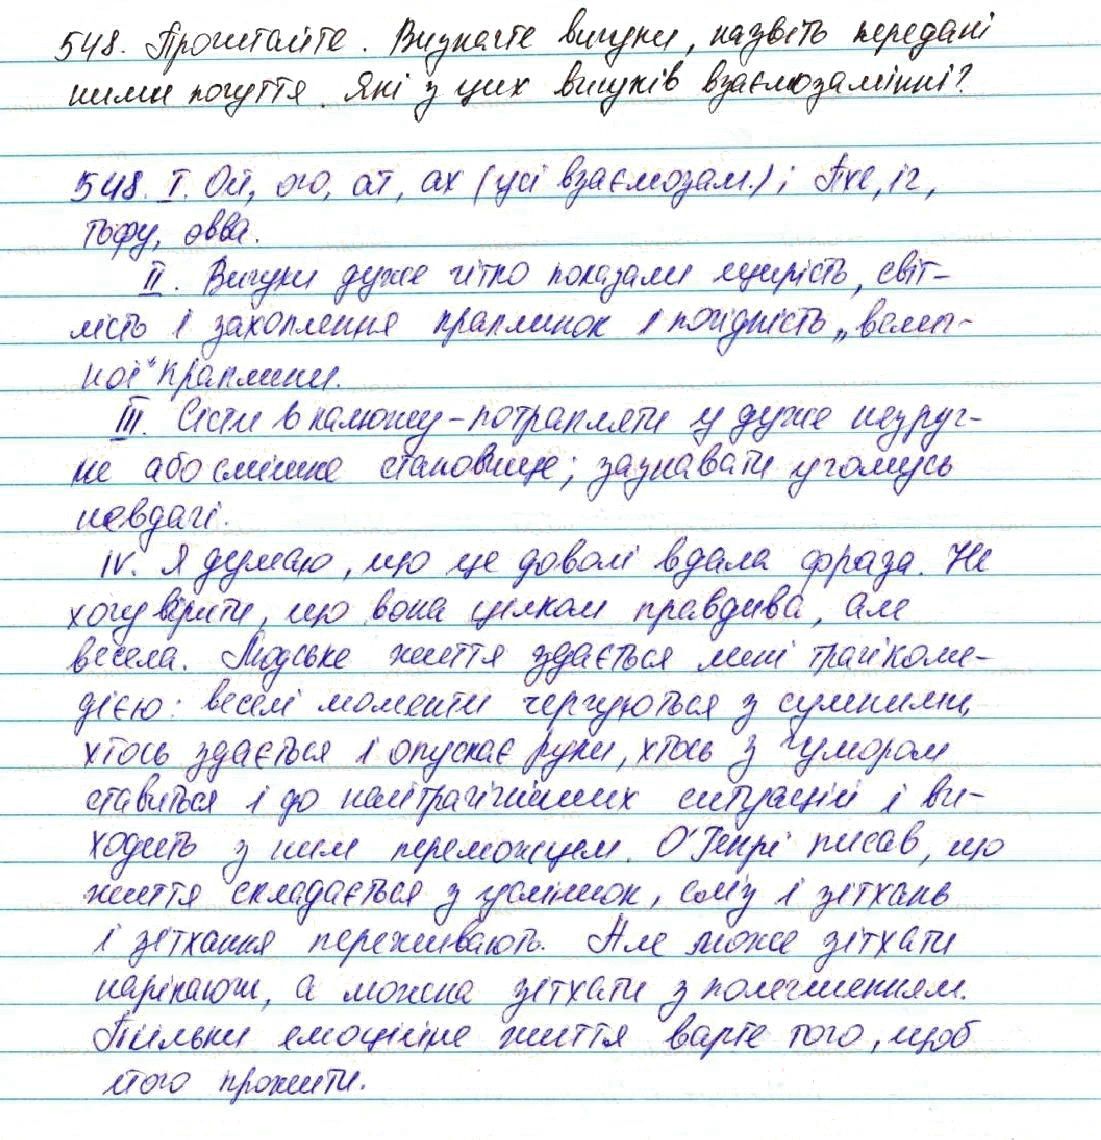 548. Прочитайте. Визначте вигуки, назвіть передані
ними почуття. Які з цих вигуків взаємозамінні?
548. I. Ой, ого, ат, ах (усі взаємозам.); Пхе, іч,
тьфу, овва.
II. Вигуки дуже чітко показали щирість, світ-
лість і захоплення краплинок і похідність „велич-
ної" краплини.
III. Сісти в калюжу - потрапляти у дуже незруч-
не або смішне становище; зазнавати у чомусь
невдачі.
IV. Я думаю, що це доволі вдала фраза. Не
хочу вірити, що вона цілком правдива, але
весела. Людське життя здається мені трагікоме-
дією: веселі моменти чергуються з сумними,
хтось здається і опускає руки, хтось з гумором
ставиться і до найтрагічніших ситуацій і ви-
ходить з них переможцем. О'Генрі писав, що
життя складається з усмішок, сліз і зітхань
і зітхання переживають. Але може зітхати
нарікаючи, а можна зітхати з полегшенням.
Тільки емоційне життя варте того, щоб
його прожити.